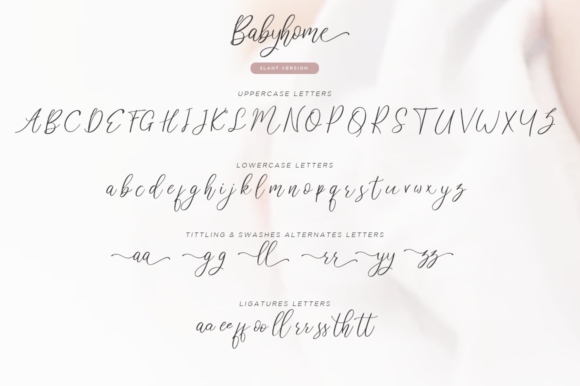 Babyhome
SLANT VERSION
UPPERCASE LETTERS
ABCDEFGHIJKLMNOPQRSTUVWXYZ
LOWERCASE LETTERS
abcdefghijklmnopqrstuvwxyz
TITTLING & SWASHES ALTERNATES LETTERS
aa gg ll rr yy zz
LIGATURES LETTERS
aa ee ff oo ll rr ss th tt